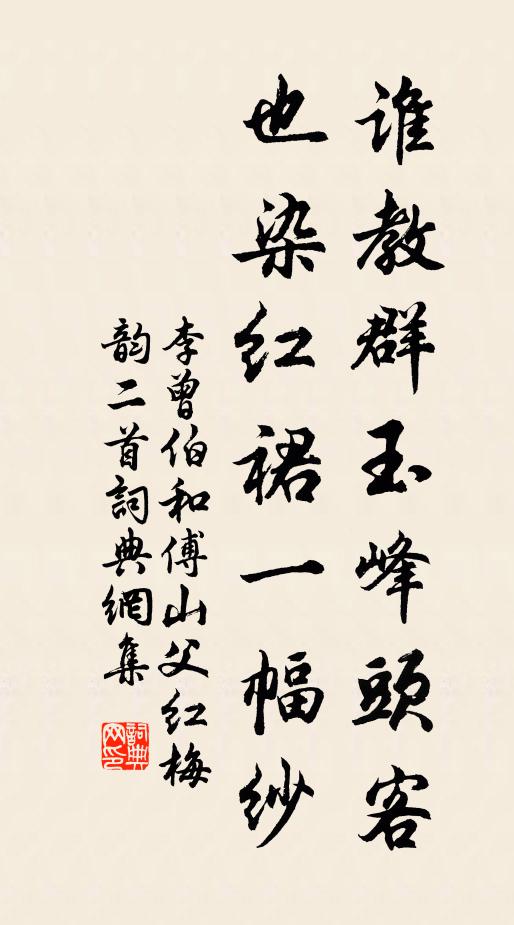 誰教群玉峰頭客
也染紅裙一幅紗
李曾伯和傅山父紅梅
韵二首詞典網集
詞典
网印